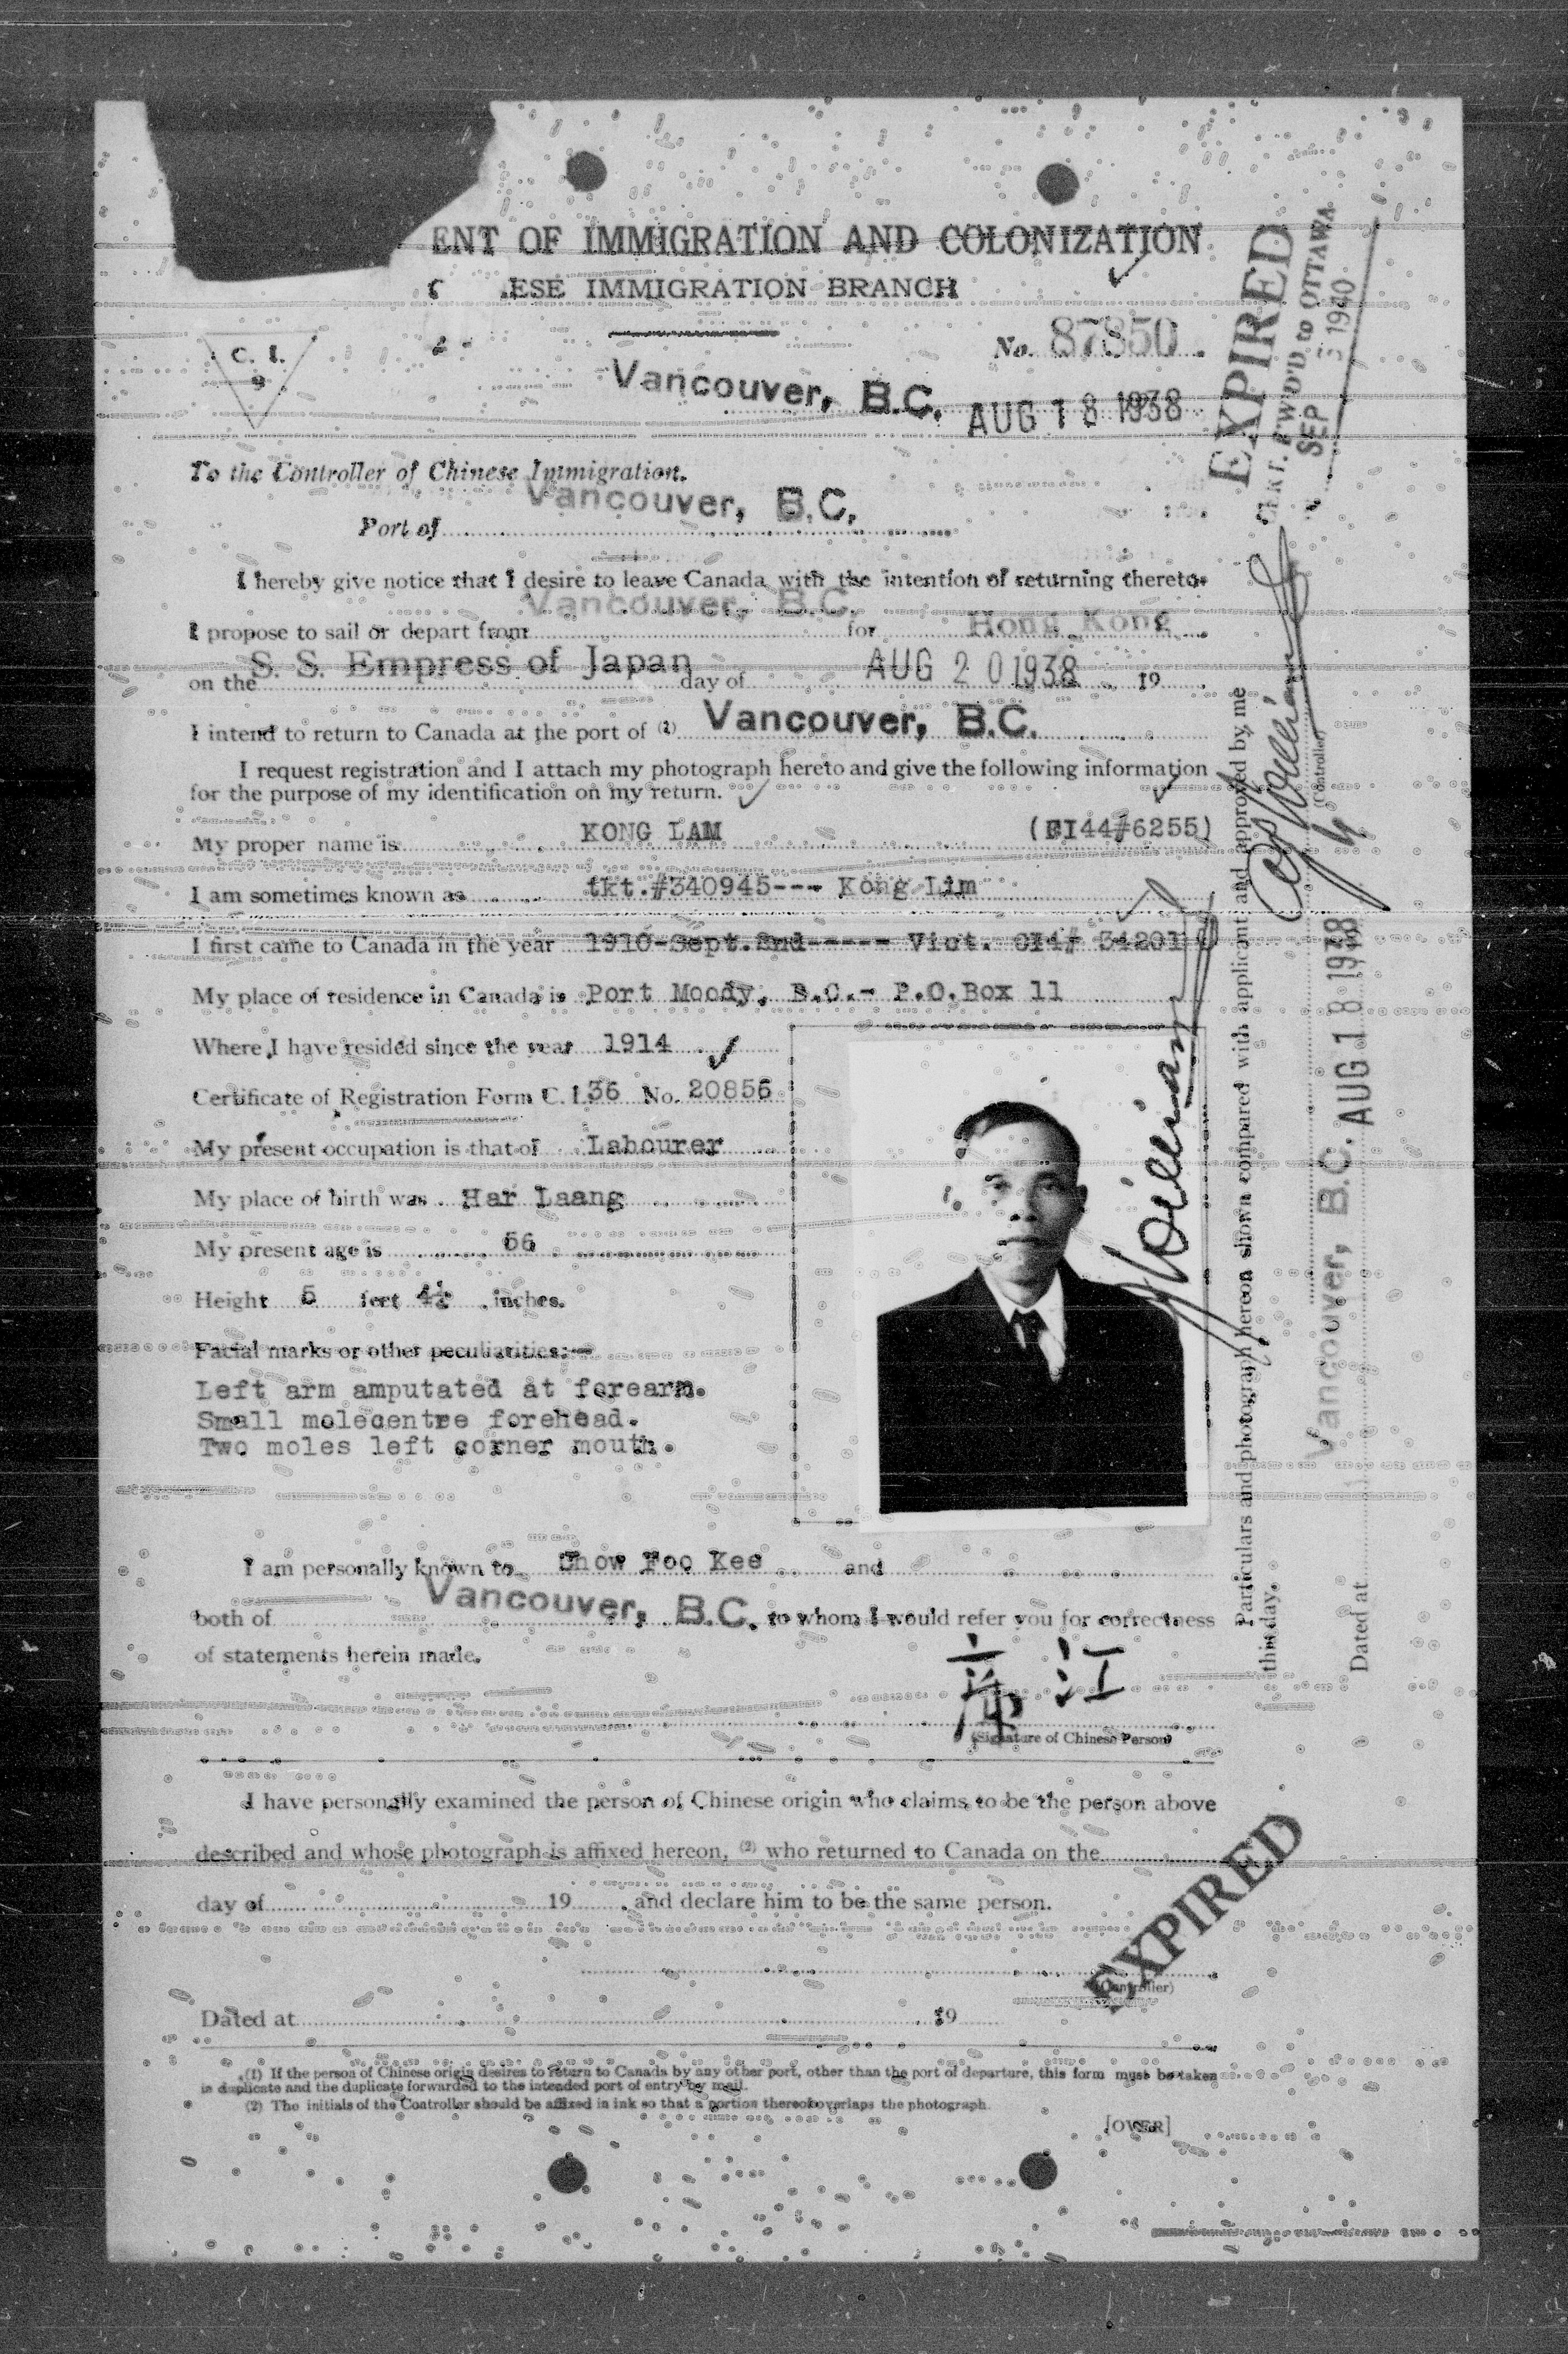 ENT OF IMMIGRATION AND COLONIZATION
ESE IMMIGRATION BRANCH
C. I.
9
No. 87850
Vancouver, B.C. AUG 18 1938
To the Controller of Chinese Immigration.
Vancouver, B.C.
Port of
I hereby give notice that I desire to leave Canada with the intention of returning thereto.
I propose to sail or depart from Vancouver, B.C. for Hong Kong
on the S. S. Empress of Japan day of AUG 20 1938 19
I intend to return to Canada at the port of (1) Vancouver, B.C.
I request registration and I attach my photograph hereto and give the following information
for the purpose of my identification on my return.
My proper name is KONG LAM (CI44#6255)
I am sometimes known as tkt.#340945--- Kong Lim
I first came to Canada in the year 1910-Sept.2nd----- Vict. CI4# 34201
My place of residence in Canada is Port Moody, B.C.- P.O.Box 11
Where I have resided since the year 1914
Certificate of Registration Form C. I. 36 No. 20856
My present occupation is that of Labourer
My place of birth was Har Laang
My present age is 56
Height 5 feet 4½ inches.
Facial marks or other peculiarities:—
Left arm amputated at forearm.
Small molecentre forehead.
Two moles left corner mouth.
I am personally known to Chow Foo Kee and
both of Vancouver, B.C. to whom I would refer you for correctness
of statements herein made.
江
(Signature of Chinese Person)
I have personally examined the person of Chinese origin who claims to be the person above
described and whose photograph is affixed hereon, (2) who returned to Canada on the
day of 19 , and declare him to be the same person.
(Controller)
EXPIRED
Dated at 19
(1) If the person of Chinese origin desires to return to Canada by any other port, other than the port of departure, this form must be taken
in duplicate and the duplicate forwarded to the intended port of entry by mail.
(2) The initials of the Controller should be affixed in ink so that a portion thereof overlaps the photograph.
[OVER]
EXPIRED
CERT. F'W'D'D to OTTAWA
SEP 3 1940
Particulars and photograph hereon shown compared with applicant and approved by me
this day.
(Controller)
Dated at Vancouver, B.C. AUG 18 1938